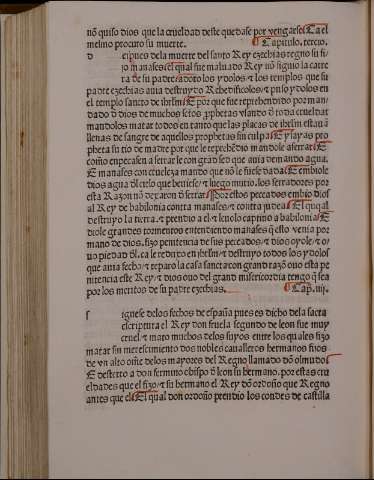 nō quiso dios que la crueldad deste quedase por vengarse. Ca el
mesmo procuro su muerte. Capitulo. tercio.
d espues dela muerte del sancto Rey ezechias regno su fi
jo manases. el qual fue maluado Rey nō siguio la carre
ra de su padre. adoro los ydolos. ⁊ los templos que su
padre ezechias auia destruydo Rehedificolos. ⁊ puso ydolos en
el templo sancto de ihrlm. E por que fue reprehendido por man
dado d dios de muchos sctos prophetas vsando d toda crueldat
mandolos matar todos en tanto que las placas de ihrlm estauā
llenas de sangre de aquellos prophetas sin culpa. E ysayas pro
pheta su tio de madre por que le reprehēdio mandole aserrar. E
como enpecasen a serrar le con grand sed que auia demando agua.
E manases con crueleza mando que nō le fuese dada. E embiole
dios agua dl cielo que beuiese. ⁊ luego murio. los serradores por
esta Razon nō dexaron d serrar. Por estos peccados embio dios
al Rey de babilonia contra manases. ⁊ contra judea. El qual
destruyo la tierra. ⁊ prendio a el ⁊ leuolo captiuo a babilonia. E
diole grandes tormentos entendiendo manases q̄ esto venia por
mano de dios. fizo penitencia de sus peccados. ⁊ dios oyole ⁊ o
uo piedad dl. ca le redutio en ihrlm ⁊ destruyo todos los ydolos
que auia fecho. ⁊ reparo la casa sancta con grand razō ouo esta pe
nitencia este Rey ⁊ dios ouo del grand misericordia tengo q̄ sea
por los meritos de su padre ezechias. Cap. iiij.
s iguese delos fechos de españa pues es dicho dela sacra
escriptura el Rey don fruela segundo de leon fue muy
cruel ⁊ mato muchos delos suyos entre los quales fizo
matar sin meresçimiento dos nobles caualleros hermanos fijos
de vn alto ome delos mayores del Regno llamado dō olmudo.
E desterro a don fermino obispo d leon su hermano. por estas cru
eldades que el fizo. ⁊ su hermano el Rey dō ordoño que Regno
antes que el. El qual don ordoño prendio los condes de castilla